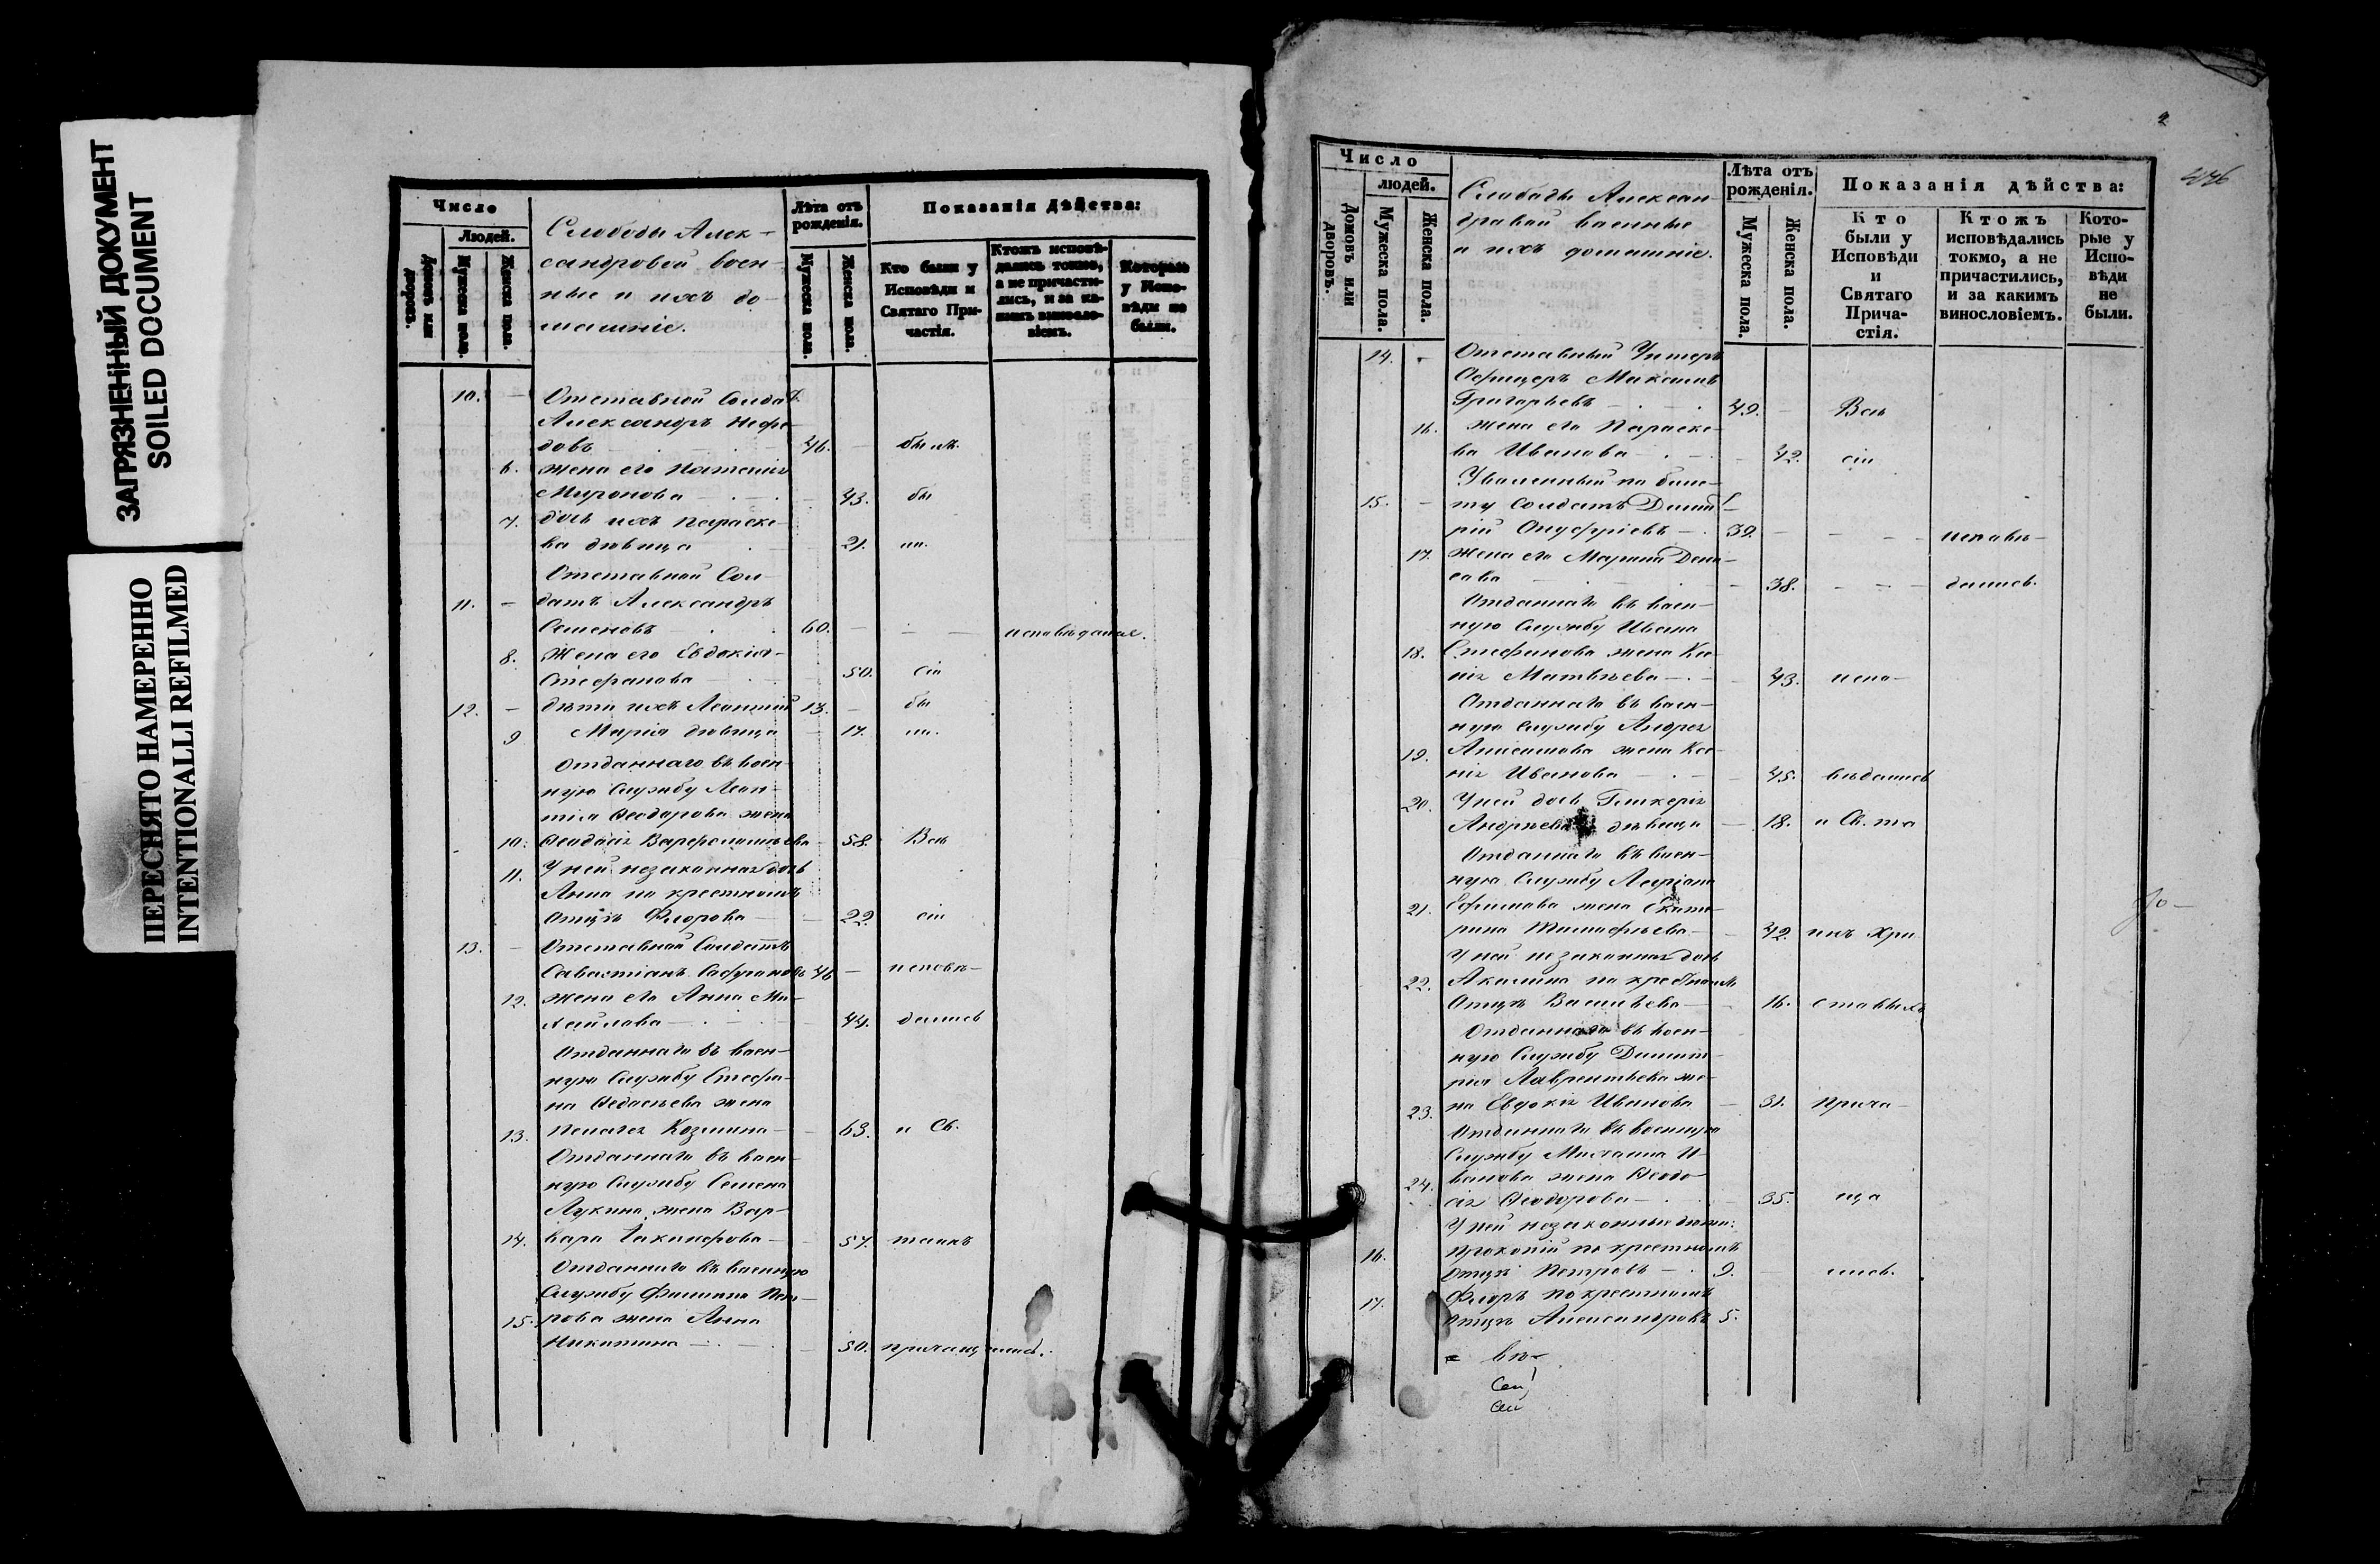 ЗАГРЯЗНЕННЫЙ ДОКУМЕНТ
SOILED DOCUMENT
ПЕРЕСНЯТО НАМЕРЕННО
INTENTIONALLI REFILMED
Число
Людей.
Домовъ или дворовъ.
Мужеска пола.
Женска пола.
Слободы Алек-
сандровой воен-
ные и ихъ до-
машніе.
Лѣта отъ рожденія.
Мужеска пола.
Женска пола.
Показанія дѣйства:
Кто были у Исповѣди и Святаго При-частія.
Ктожъ исповѣ-дались токмо, а не причасти-лись, и за ка-кимъ винословіемъ.
Которые у Испо-вѣди не были.
10. — Отставной Солдат
Александръ Нефе-
довъ 46. — были.
6. Жена его
Миронова — 43. бы
7. дочь ихъ Параске-
ва дѣвица 21. ли.
Отставной Сол-
11. — датъ Александръ
Семеновъ 60. — — — исповѣдался.
8. Жена его Евдокія
Стефанова 50. сіи
12. — дѣти ихъ Леонтій 13. — бы
9 Марія дѣвица — 17. ли.
Отданнаго въ воен-
ную службу Леон-
тія Ѳеодорова жена
10. Ѳеодосія Варфоломѣева 58. Всѣ
11. У ней незаконная дочь
Анна по крестномъ
Отцѣ Флорова — 22. сіи
13. — Отставной Солдатъ
Савастіанъ Сафроновъ 46 — исповѣ-
12. жена его Анна Ми-
хайлова — 44. дались
Отданнаго въ воен-
ную Службу Стефа-
на жена
13. Пелагея Козмина — 63. и Св.
Отданнаго въ воен-
ную Службу Семена
Лукина жена Вар-
14. вара Іакинфова — 57. таинъ
Отданнаго въ военную
Службу Филиппа Пет-
15. рова жена Анна
Никитина — 50. причащались.
2
446
Число
людей.
Домовъ или дворовъ.
Мужеска пола.
Женска пола.
Слободы Алексан-
дровой военные
и ихъ домашніе.
Лѣта отъ рожденія.
Мужеска пола.
Женска пола.
Показанія дѣйства:
Кто были у Исповѣди и Святаго Прича-стія.
Ктожъ исповѣдались токмо, а не причастились, и за какимъ винословіемъ.
Кото-рые у Испо-вѣди не были.
14. - Отставный Унтеръ
Офицеръ Максимъ
Григорьевъ — 49. — Всѣ
16. жена его Параске-
ва Иванова — 42. сіи
Уволенный по биле-
15. — ту Солдатъ Димит-
рій Онуфріевъ — 39. — — — исповѣ-
17. жена его Марина Дени-
сова — 38. — — дались.
Отданнаго въ воен-
ную Службу Ивана
18. Стефанова жена Ксе-
нія Матвѣева — 43. испо-
Отданнаго въ воен-
ную службу Андрея
19. Анисимова жена Ксе-
нія Иванова — 45. вѣдались
20. У ней дочь Гликерія
Андреева дѣвица — 18. и Св. та
Отданнаго въ воен-
ную Службу
21. Ефимова жена Екате-
рина Тимофеева — 42. инъ Хри
У ней незаконная дочь
22. Акилина по крестномъ
Отцѣ Васильева — 16. стовыхъ
Отданнаго въ воен-
ную Службу Димит-
рія Лаврентьева же-
23. на Евдокія Иванова — 31. прича-
Отданнаго въ военную
Службу Михаила И-
24. ванова жена Ѳеодо-
сія Ѳеодорова — 35. ща
У ней незаконные дѣти:
16. Прокопій по крестномъ
Отцѣ Петровъ — 9. — лись.
17. Флоръ по крестномъ
Отцѣ Александровъ 5.